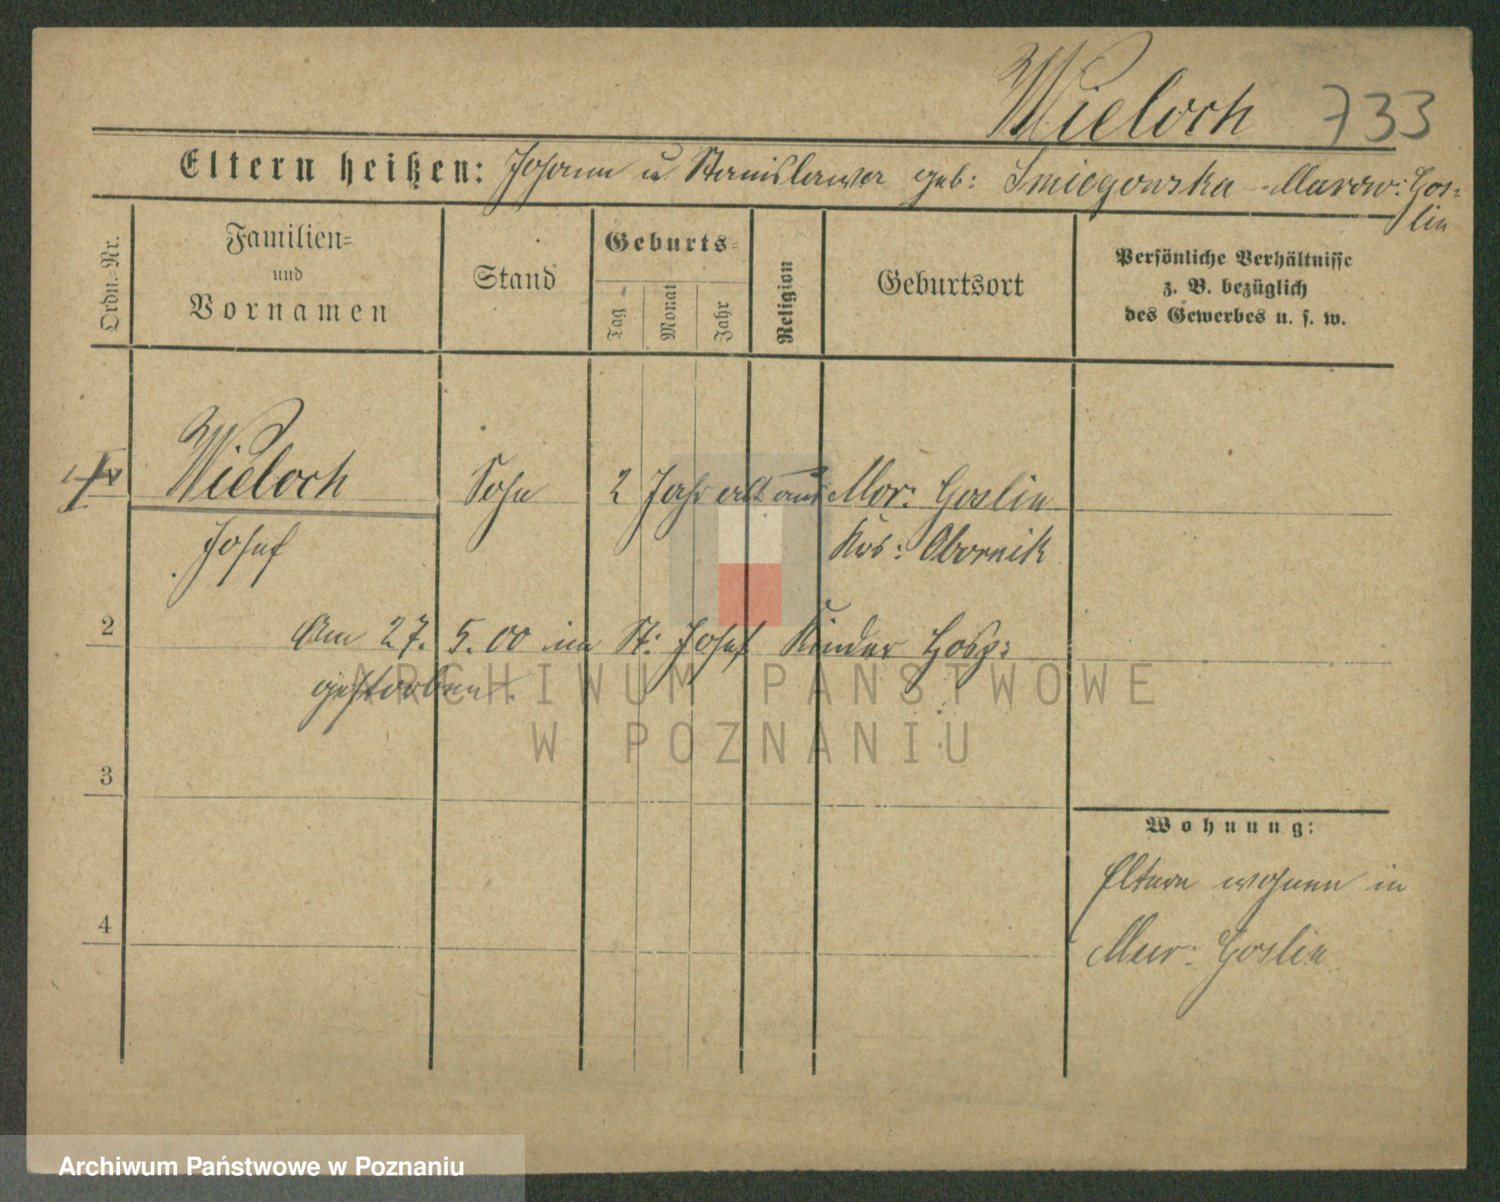 Wieloch 733
Eltern heißen: Johann u Stanislawa geb: Smiegowska Murow: Gos=
lin
Ordn.=Nr.
Familien=
und
Vornamen
Stand
Geburts=
Tag
Monat
Jahr
Religion
Geburtsort
Persönliche Verhältnisse
z. B. bezüglich
des Gewerbes u. s. w.
1 Wieloch Sohn 2 Jahr alt aus Mur: Goslin
Josef Krs: Obornik
2 Am 27. 5. 00 im St. Josef Kinder Hosp:
gestorben.
ARCHIWUM PAŃSTWOWE
W POZNANIU
3
Wohnung:
Eltern wohnen in
4 Mur: Goslin
Archiwum Państwowe w Poznaniu